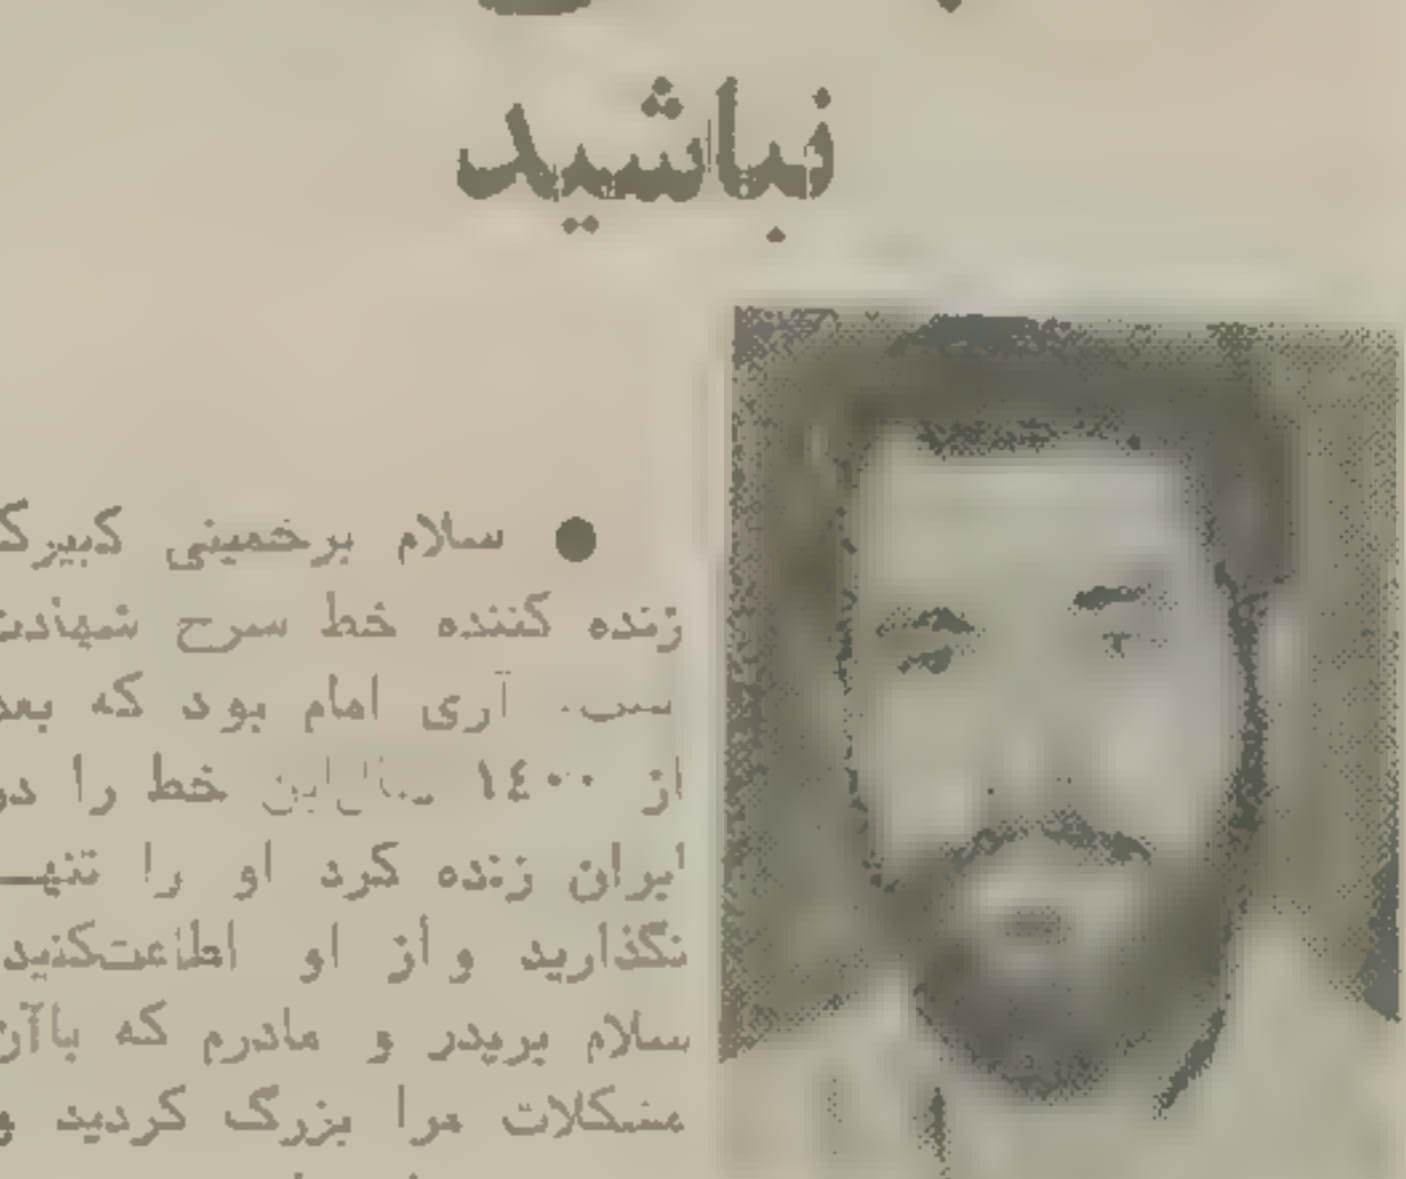 نباشید
● سلام برخمینی کبیرکـ
زنده کننده خط سرخ شهادت
آری امام بود که بعد
از ۱٤۰۰ سال این خط را در
ایران زنده کرد او را تنهـــ
نگذارید و از او اطاعت‌کنید
سلام برپدر و مادرم که باآن
مشکلات مرا بزرگ کردید و